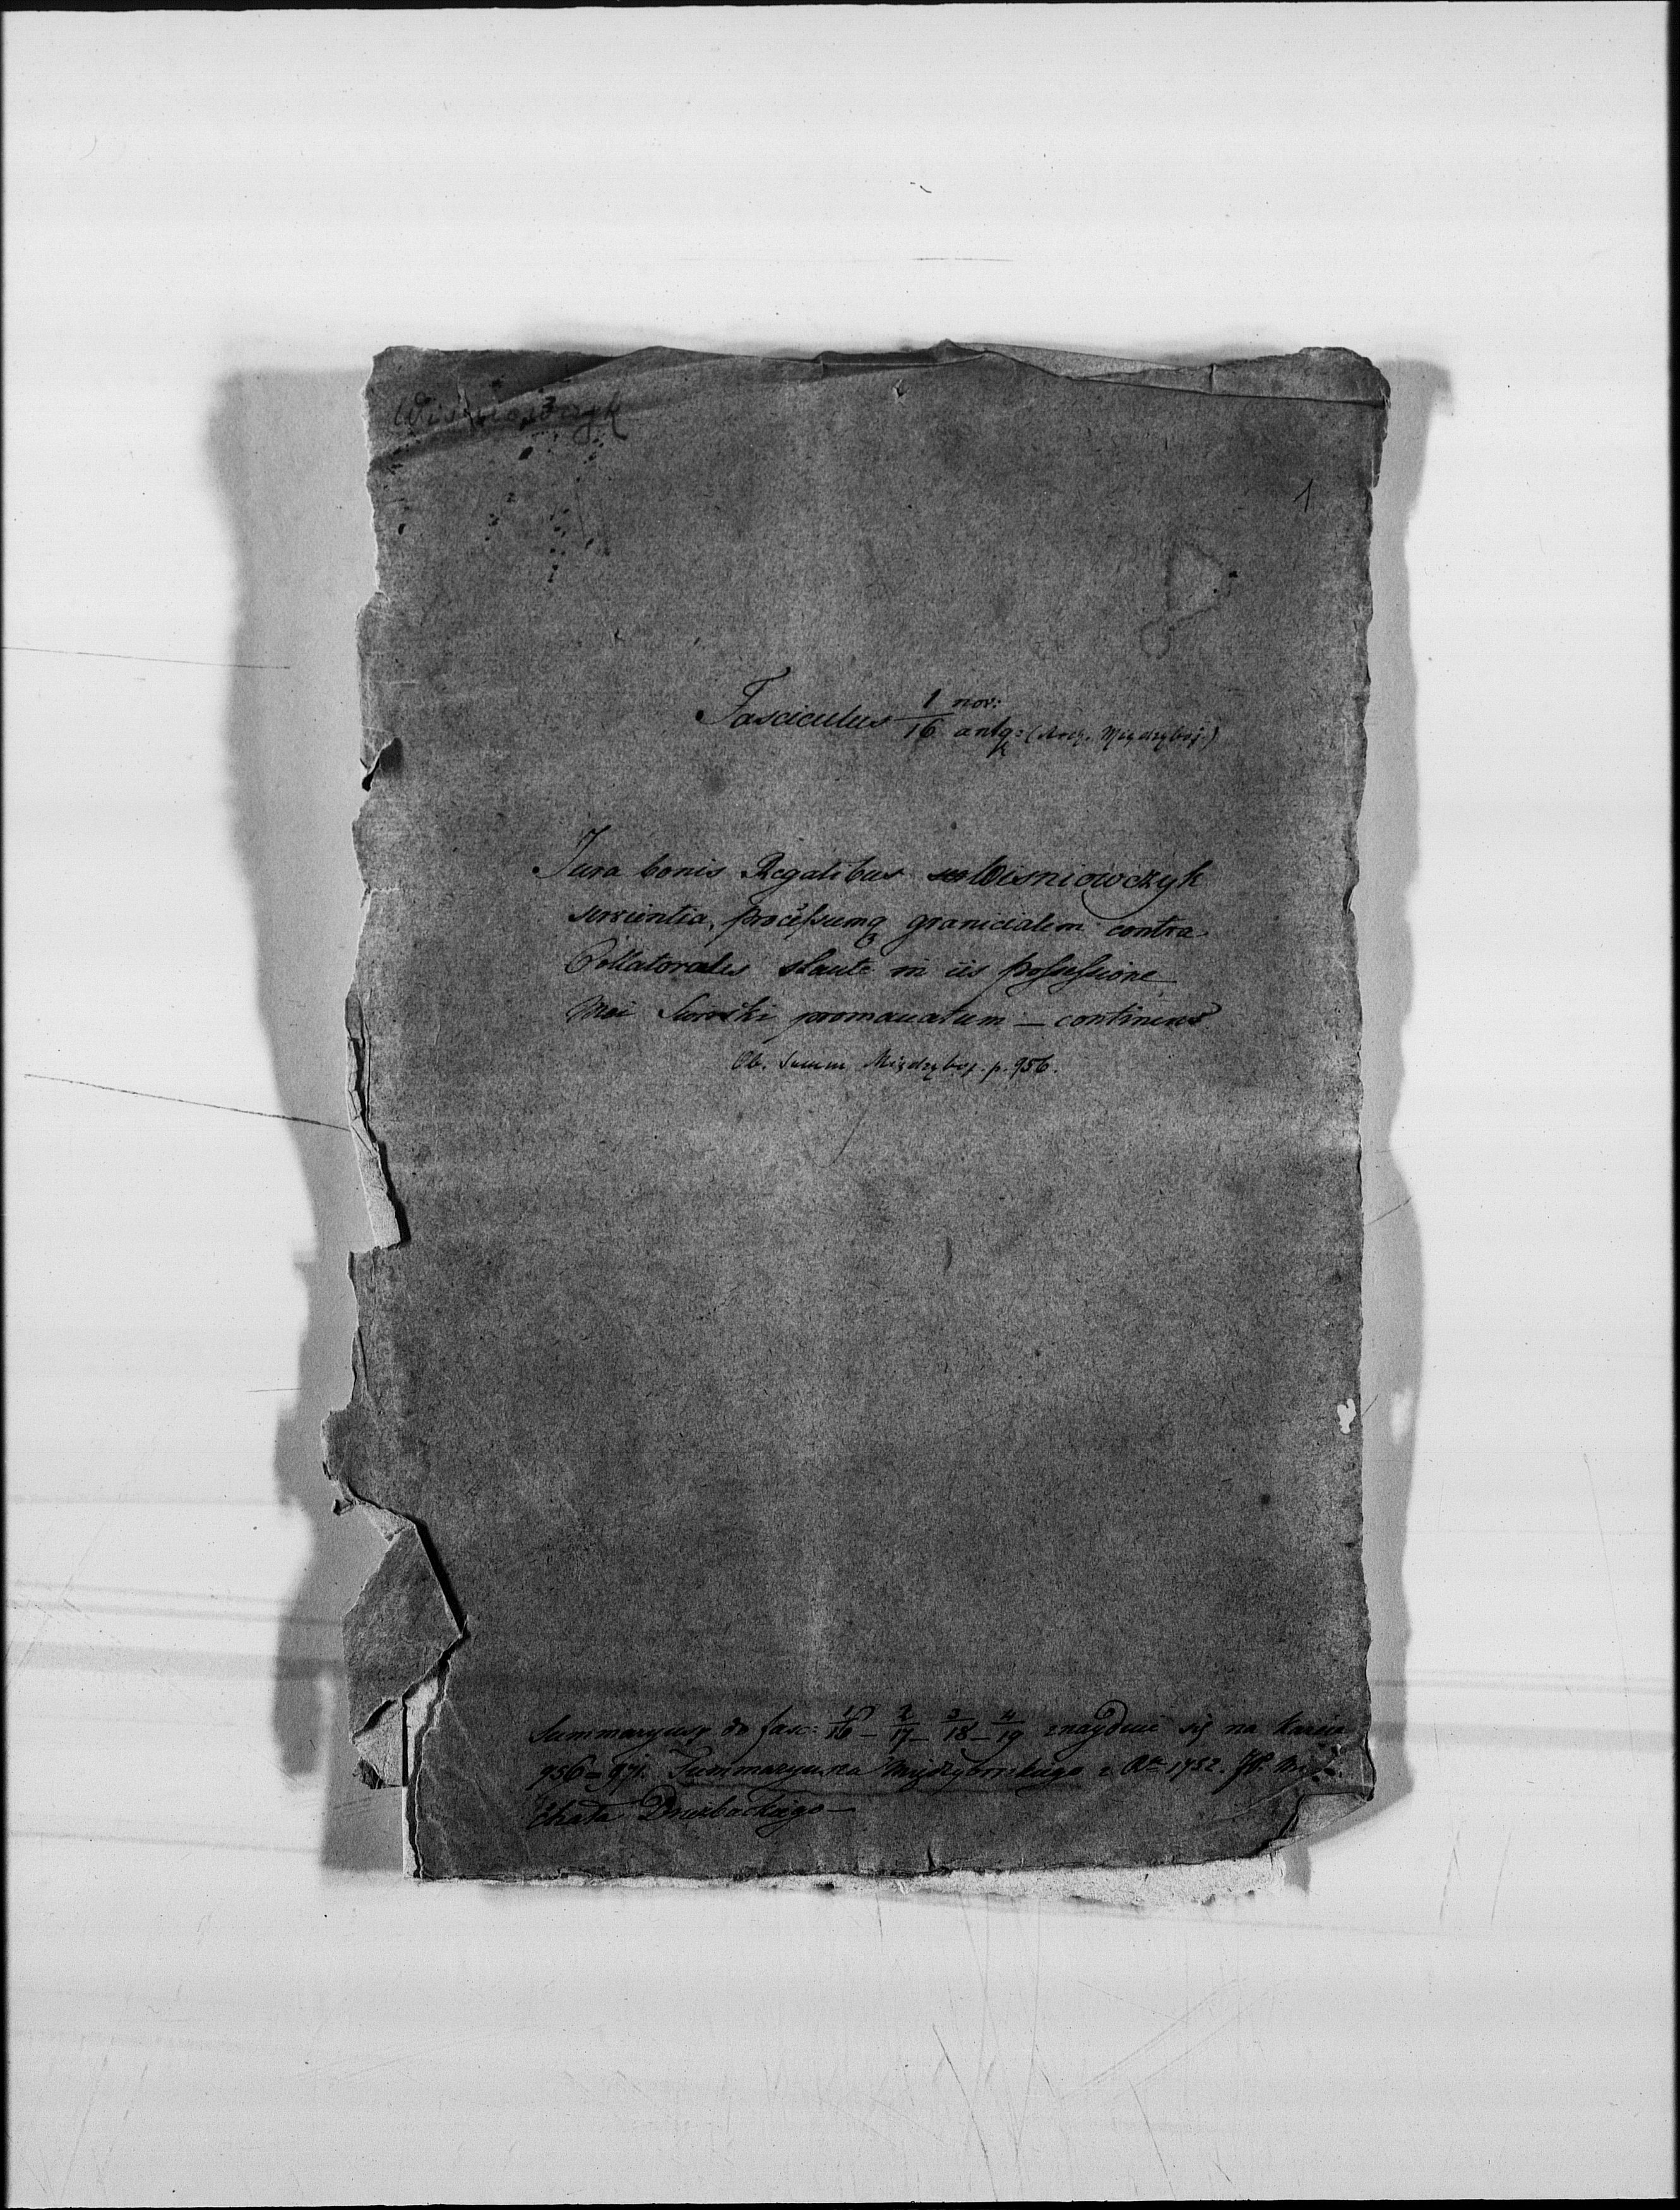 Wiśniowczyk
1
Fasciculus 1/16 nov: antq: (Arch. Międzyboż.)
Jura bonis Regalibus Wisniowczyk
servientia, processumq granicialem contra
Collatorales stante in iis possessione
Mci Sieniawski promanatum — continens
Ob. Summ Międzyboż. p. 956.
Summaryusz do fasc: 1/16 — 2/17 — 3/18 — 4/19 znayduie się na karcie
956 = 971. Summaryusza Międzyborskiego z Ao 1752. JP. Mi
chała Druzbackiego —